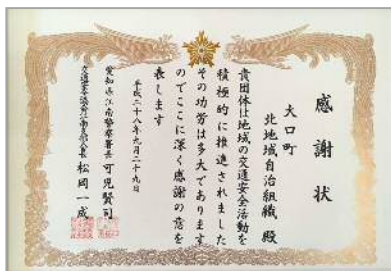 感謝状
大口町
北地域自治組織 殿
貴団体は地域の交通安全活動を
積極的に推進されました
その功労は多大であります
のでここに深く感謝の意を
表します
平成二十八年九月二十九日
愛知県江南警察署長 可児賢司
交通安全協会江南支部会長 松岡一成